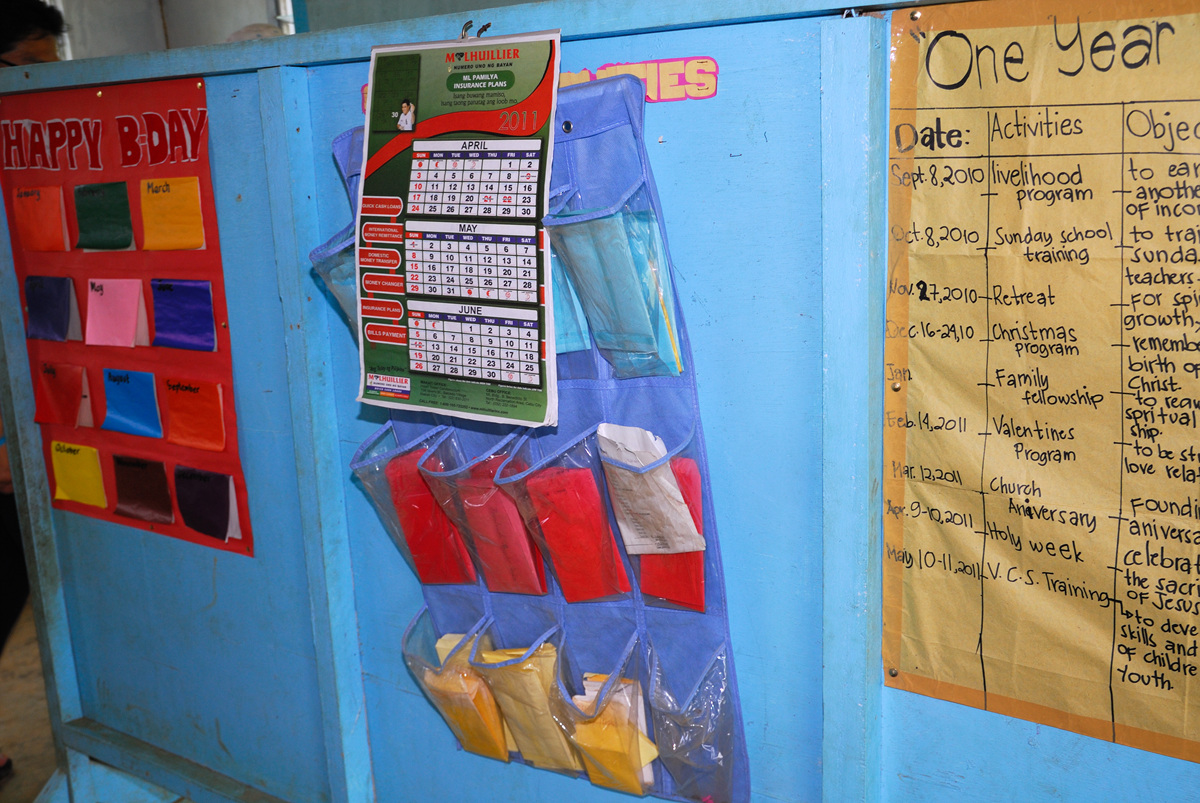 HAPPY B-DAY
January
March
May
June
July
August
September
October
MLHUILLIER
NUMERO UNO NG BAYAN
ML PAMILYA
INSURANCE PLANS
Isang buwang mamuo,
isang taong panatag ang loob mo.
30
2011
APRIL
SUN MON TUE WED THU FRI SAT
1 2
3 4 5 6 7 8 9
10 11 12 13 14 15 16
17 18 19 20 21 22 23
24 25 26 27 28 29 30
QUICK CASH LOANS
INTERNATIONAL
MONEY REMITTANCE
DOMESTIC
MONEY TRANSFER
MONEY CHANGER
INSURANCE PLANS
BILLS PAYMENT
MAY
SUN MON TUE WED THU FRI SAT
1 2 3 4 5 6 7
8 9 10 11 12 13 14
15 16 17 18 19 20 21
22 23 24 25 26 27 28
29 30 31
JUNE
SUN MON TUE WED THU FRI SAT
1 2 3 4
5 6 7 8 9 10 11
12 13 14 15 16 17 18
19 20 21 22 23 24 25
26 27 28 29 30
MLHUILLIER
TIES
"One Year
Date: Activities Objec
Sept. 8, 2010 livelihood program to ear another of incom
Oct. 8, 2010 Sunday school training to trai sunda teachers.
Nov. 27, 2010 Retreat For spi growth.
Dec. 16-24,10 Christmas program remembe birth of Christ.
Jan. Family fellowship to reaw spritual ship.
Feb. 14, 2011 Valentines Program to be str love rela
Mar. 12, 2011 Church Aniversary Foundin aniversa
Apr. 9-10, 2011 Holy week celebrat the sacri of Jesus
May 10-11, 2011 V.C.S. Training to deve skills and of childre Youth.